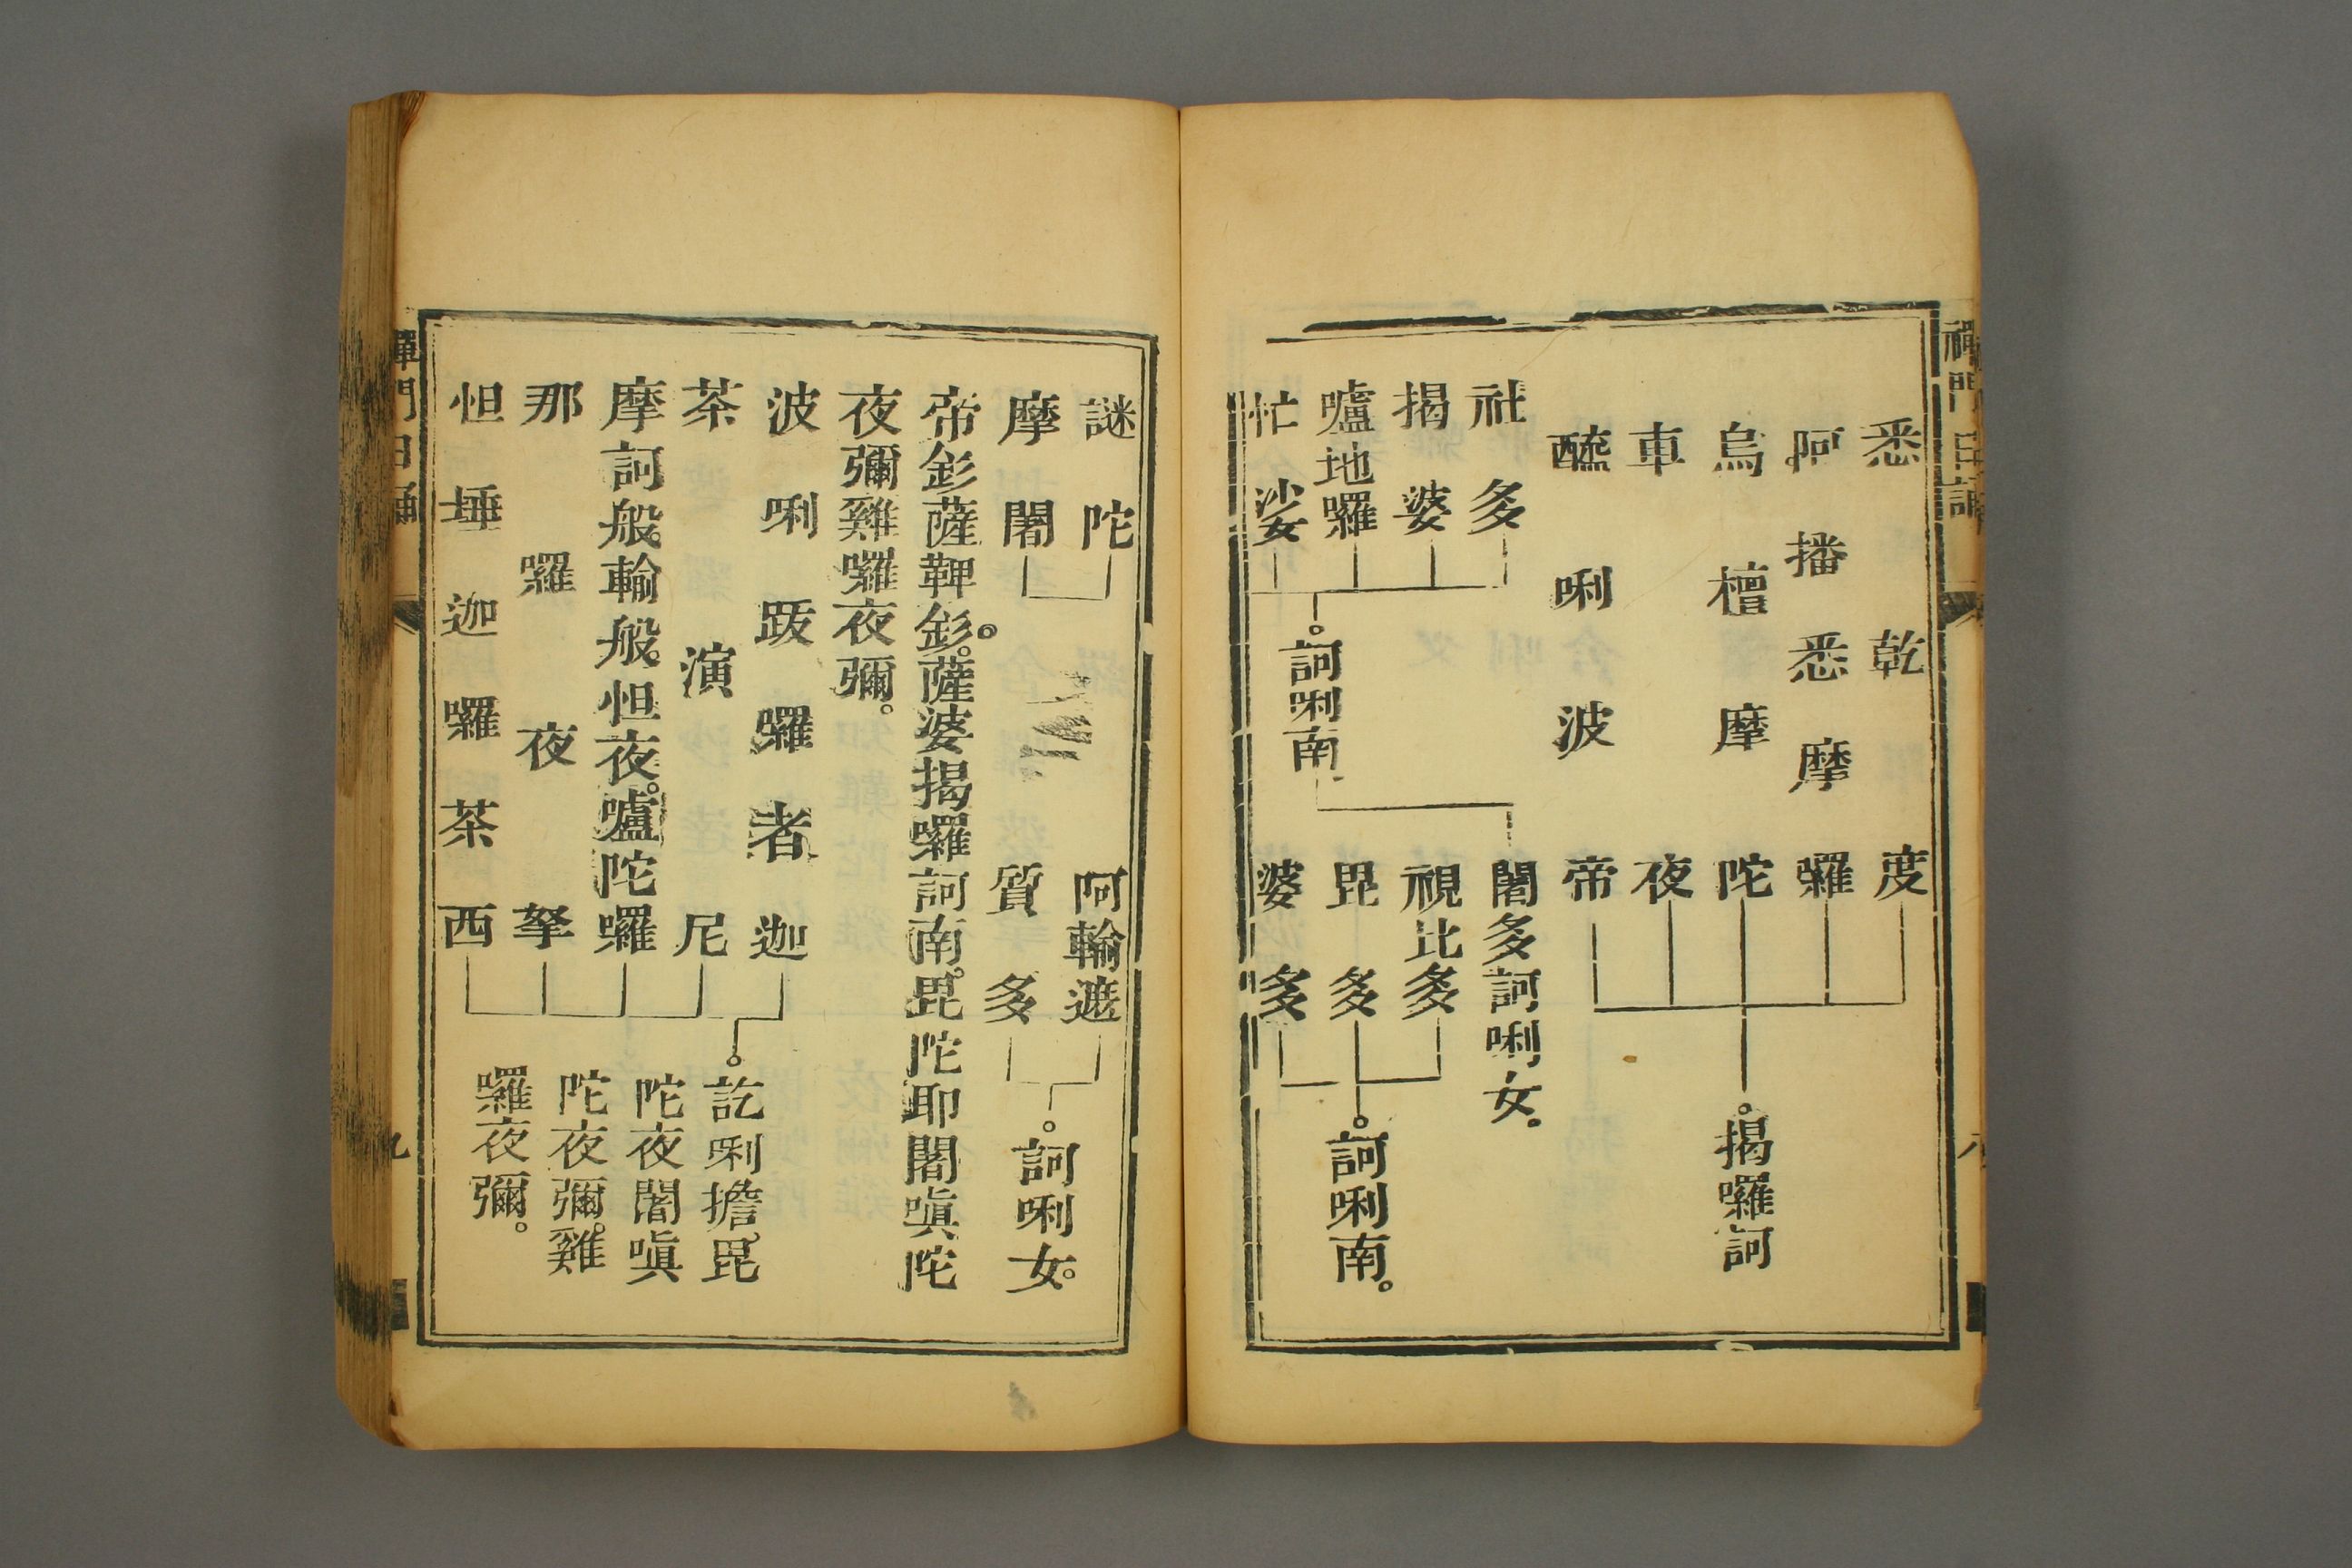 禪門日誦
悉乾度
阿播悉摩囉
烏檀摩陀
車夜
醯唎波帝
揭囉訶
社多
揭婆
嚧地囉
忙娑
訶唎南
闍多訶唎女。
視比多
毘多
婆多
訶唎南。
八
謎陀
摩闍
阿輸遮
質多
訶唎女。
帝釤薩鞞釤。薩婆揭囉訶南。毘陀耶闍嗔陀
夜彌雞囉夜彌。
波唎跋囉者迦
茶演尼
摩訶般輸般。怛夜。嚧陀囉
那囉夜拏
怛埵迦囉茶西
訖唎擔。毘
陀夜闍嗔
陀夜彌。雞
囉夜彌。
禪門日誦
九